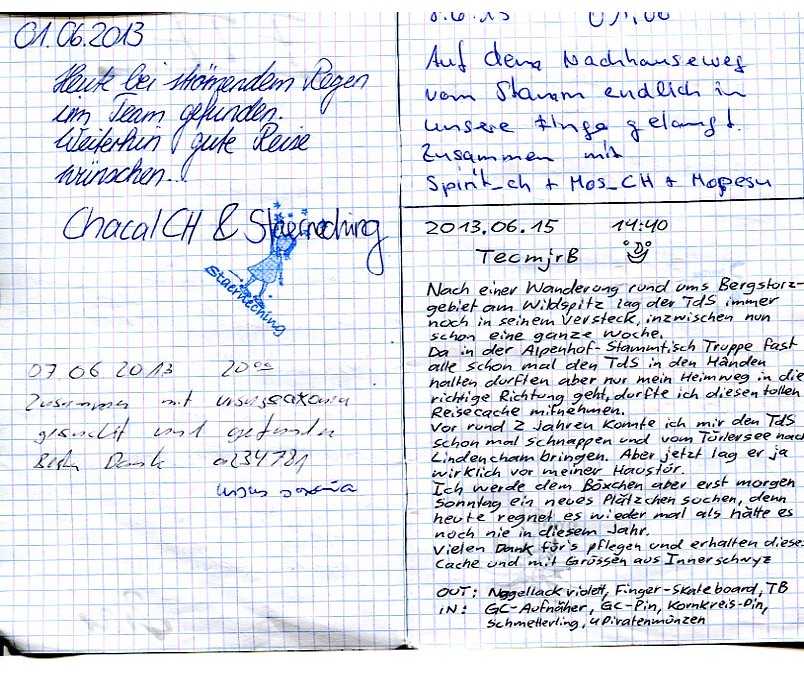 01.06.2013
Heute bei strömendem Regen
im Team gefunden.
Weiterhin gute Reise
wünschen...
ChacalCH & Staerneching
staerneching
07.06 2013 20
Zusammen mit ursussaxonia
gesucht und gefunden
Besten Dank a234781
ursus saxonia
8.6.13
Auf dem Nachhauseweg
vom Stamm endlich in
unsere Finge gelangt.
Zusammen mit
Spirit_ch + Mos_CH + Mopesu
2013.06.15 14:40
TecmjrB
Nach einer Wanderung rund ums Bergsturz-
gebiet am Wildspitz lag der TdS immer
noch in seinem Versteck, inzwischen nun
schon eine ganze Woche.
Da in der Alpenhof-Stammtisch Truppe fast
alle schon mal den TdS in den Händen
halten durften aber nur mein Heimweg in die
richtige Richtung geht, durfte ich diesen tollen
Reisecache mitnehmen.
Vor rund 2 Jahren konnte ich mir den TdS
schon mal schnappen und vom Türlersee nach
Lindencham bringen. Aber jetzt lag er ja
wirklich vor meiner Haustür.
Ich werde dem Böxchen aber erst morgen
Sonntag ein neues Plätzchen suchen, denn
heute regnet es wieder mal als hätte es
noch nie in diesem Jahr.
Vielen Dank für's pflegen und erhalten diese
Cache und mit Grüssen aus Innerschwyz
OUT: Nagellack violett, Finger-Skateboard, TB
IN: GC-Aufnäher, GC-Pin, Kornkreis-Pin,
Schmetterling, 4 Piratenmünzen